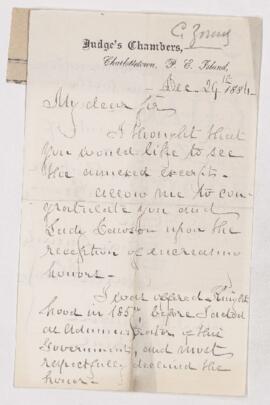 Judge's Chambers,
Charlottetown, P. E. Island,
Dec. 29th 1884.
My dear Sir
I thought that
you would like to see
the annexed excerpts.
allow me to con-
gratulate you and
Lady Dawson upon the
reception of increasing
honors.
I was offered Knight
hood in before I acted
as Administrator of this
Government, and most
respectfully declined the
honor.